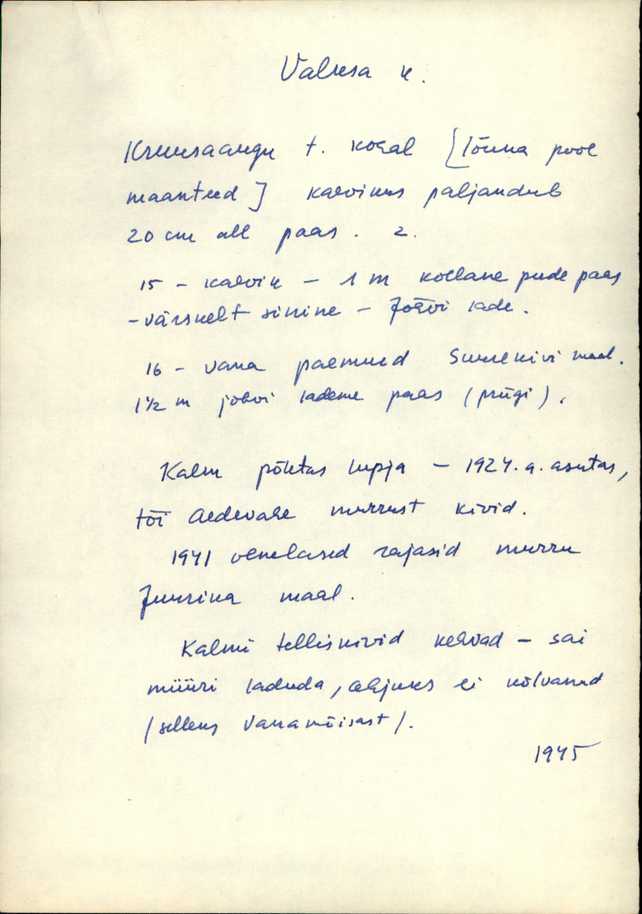 Valresa k.
Kruusaaugu t. kohal [lõuna pool
maanteed] kaevikus paljandub
20 cm all paas. 2.
15 - kaevik - 1 m kollane pude paas
- värskelt sinine - Jõhvi lade.
16 - vana paemurd Suurekivi maal.
1½ m jõhvi lademe paas (prügi).
Kalm põletas lupja - 1924. a. asutas,
tõi Aedevahe murrust kivid.
1941 venelased rajasid murru
Juurina maal.
Kalmi telliskivid kehvad - sai
müüri laduda, ahjuks ei kõlvanud
/selleks Vanamõisast/.
1945